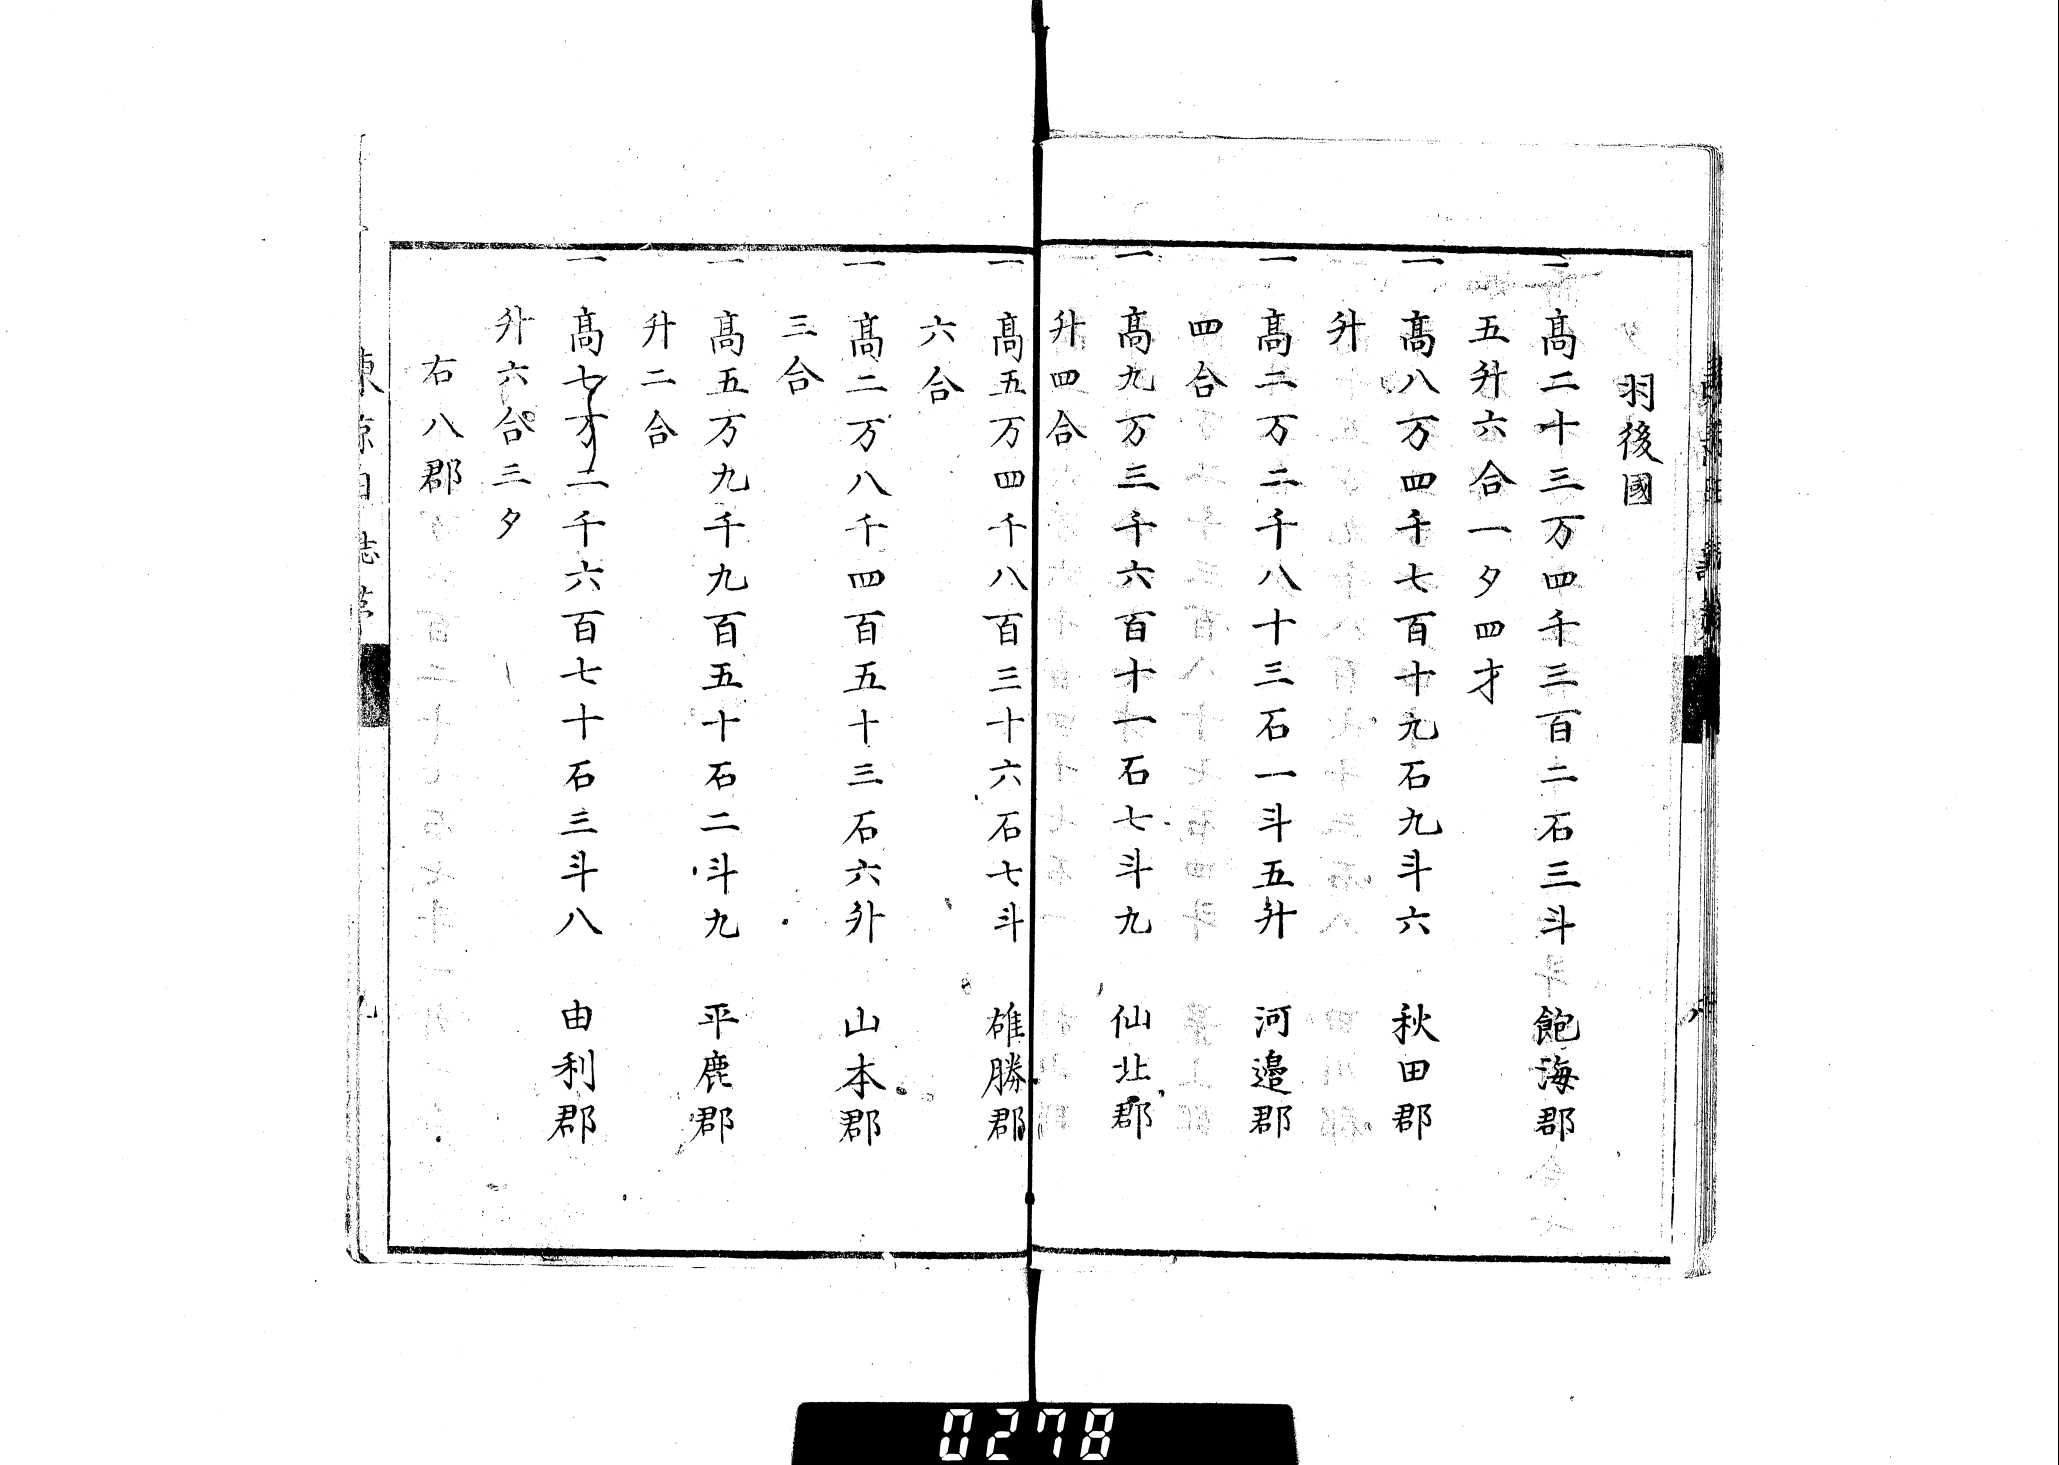 羽後國
一高二十三万四千三百二石三斗 飽海郡
五升六合一夕四才
一高八万四千七百十九石九斗六 秋田郡
升
一高二万二千八十三石一斗五升 河邉郡
四合
一高九万三千六百十一石七斗九 仙北郡
升四合
一高五万四千八百三十六石七斗 雄勝郡
六合
一高二万八千四百五十三石六升 山本郡
三合
一高五万九千九百五十石二斗九 平鹿郡
升二合
一高七万二千六百七十石三斗八 由利郡
升六合三夕
右八郡
九
0278